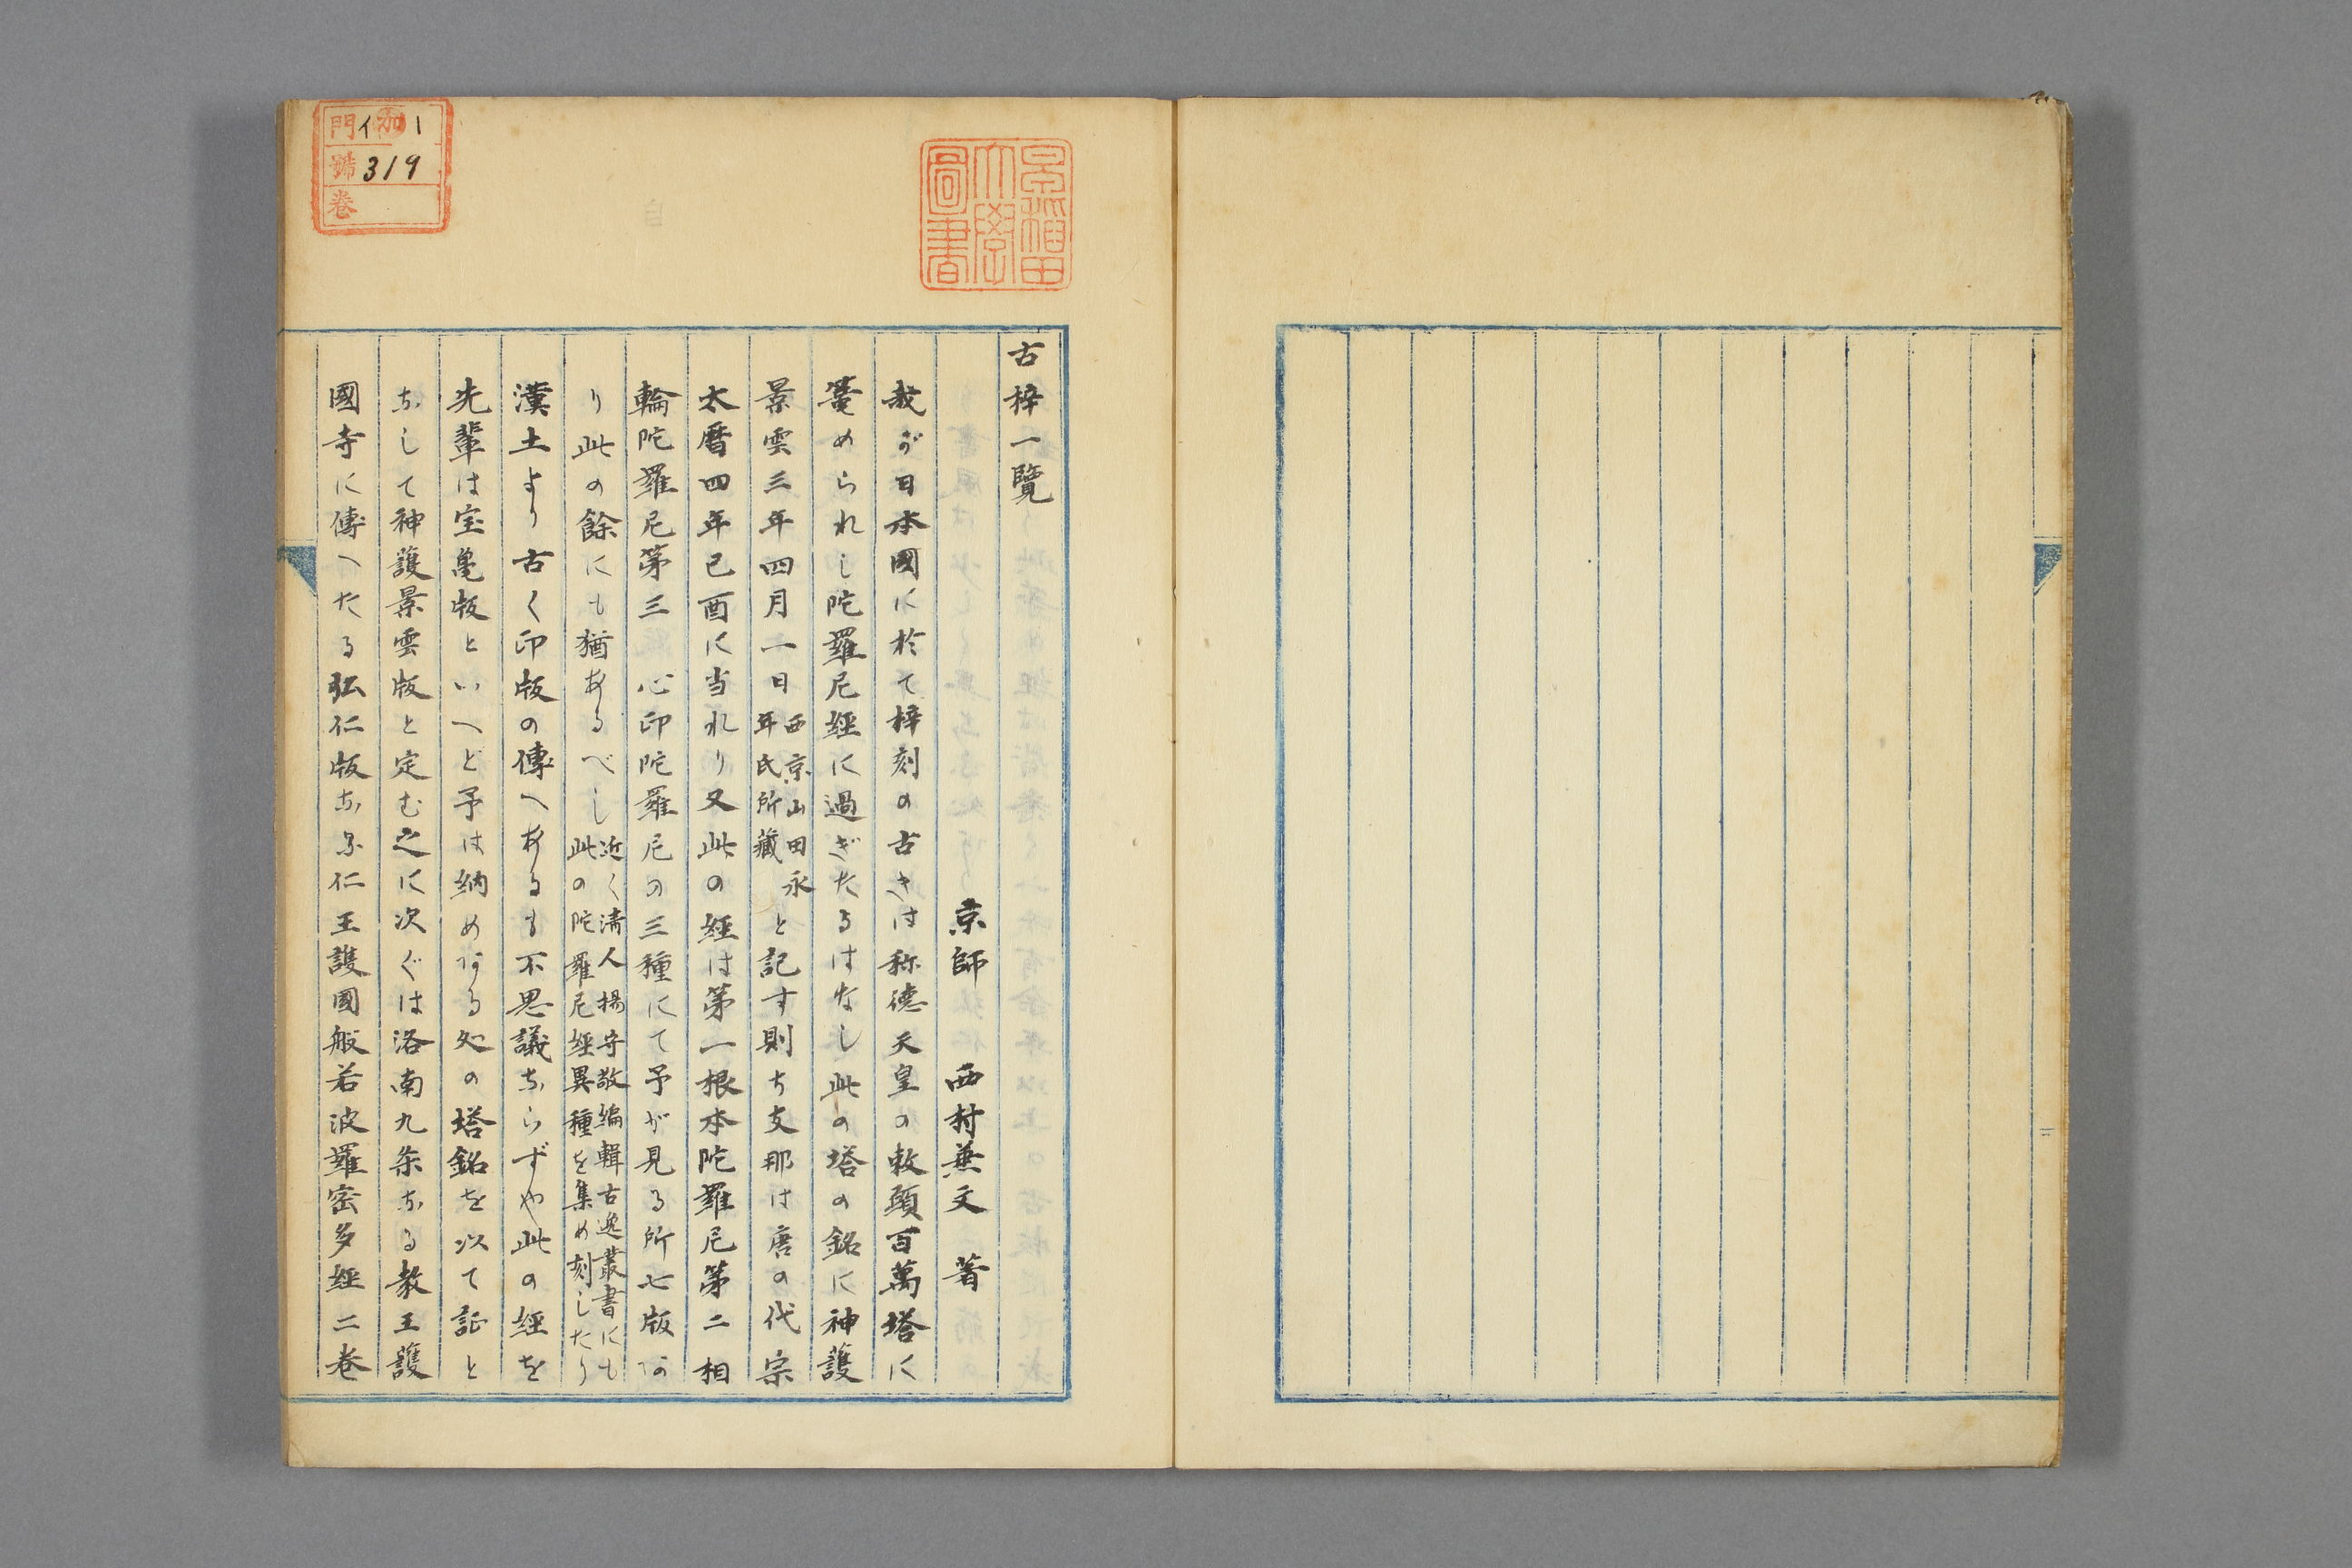 古梓一覧
京師 西村兼文 著
我が日本國に於て梓刻の古きは称徳天皇の敕願百萬塔に
篭められし陀羅尼経に過ぎたるはなし此の塔の銘に神護
景雲三年四月一日西京山田永年氏所藏と記す則ち支那は唐の代宗
太暦四年已酉に当れり又此の経は第一根本陀羅尼第二相
輪陀羅尼第三心印陀羅尼の三種にて予が見る所七版あ
り此の餘にも猶あるべし近く清人楊守敬編輯古逸叢書にも此の陀羅尼経異種を集め刻したり
漢土より古く印版の傳へあるも不思議ならずや此の経を
先輩は宝亀版といへど予は納めある処の塔銘を以て証と
なして神護景雲版と定む之に次ぐは洛南九条なる教王護
國寺に傳へたる弘仁版なる仁王護國般若波羅密多経二巻
早稲田大學圖書
門 イ 1
號 319
巻